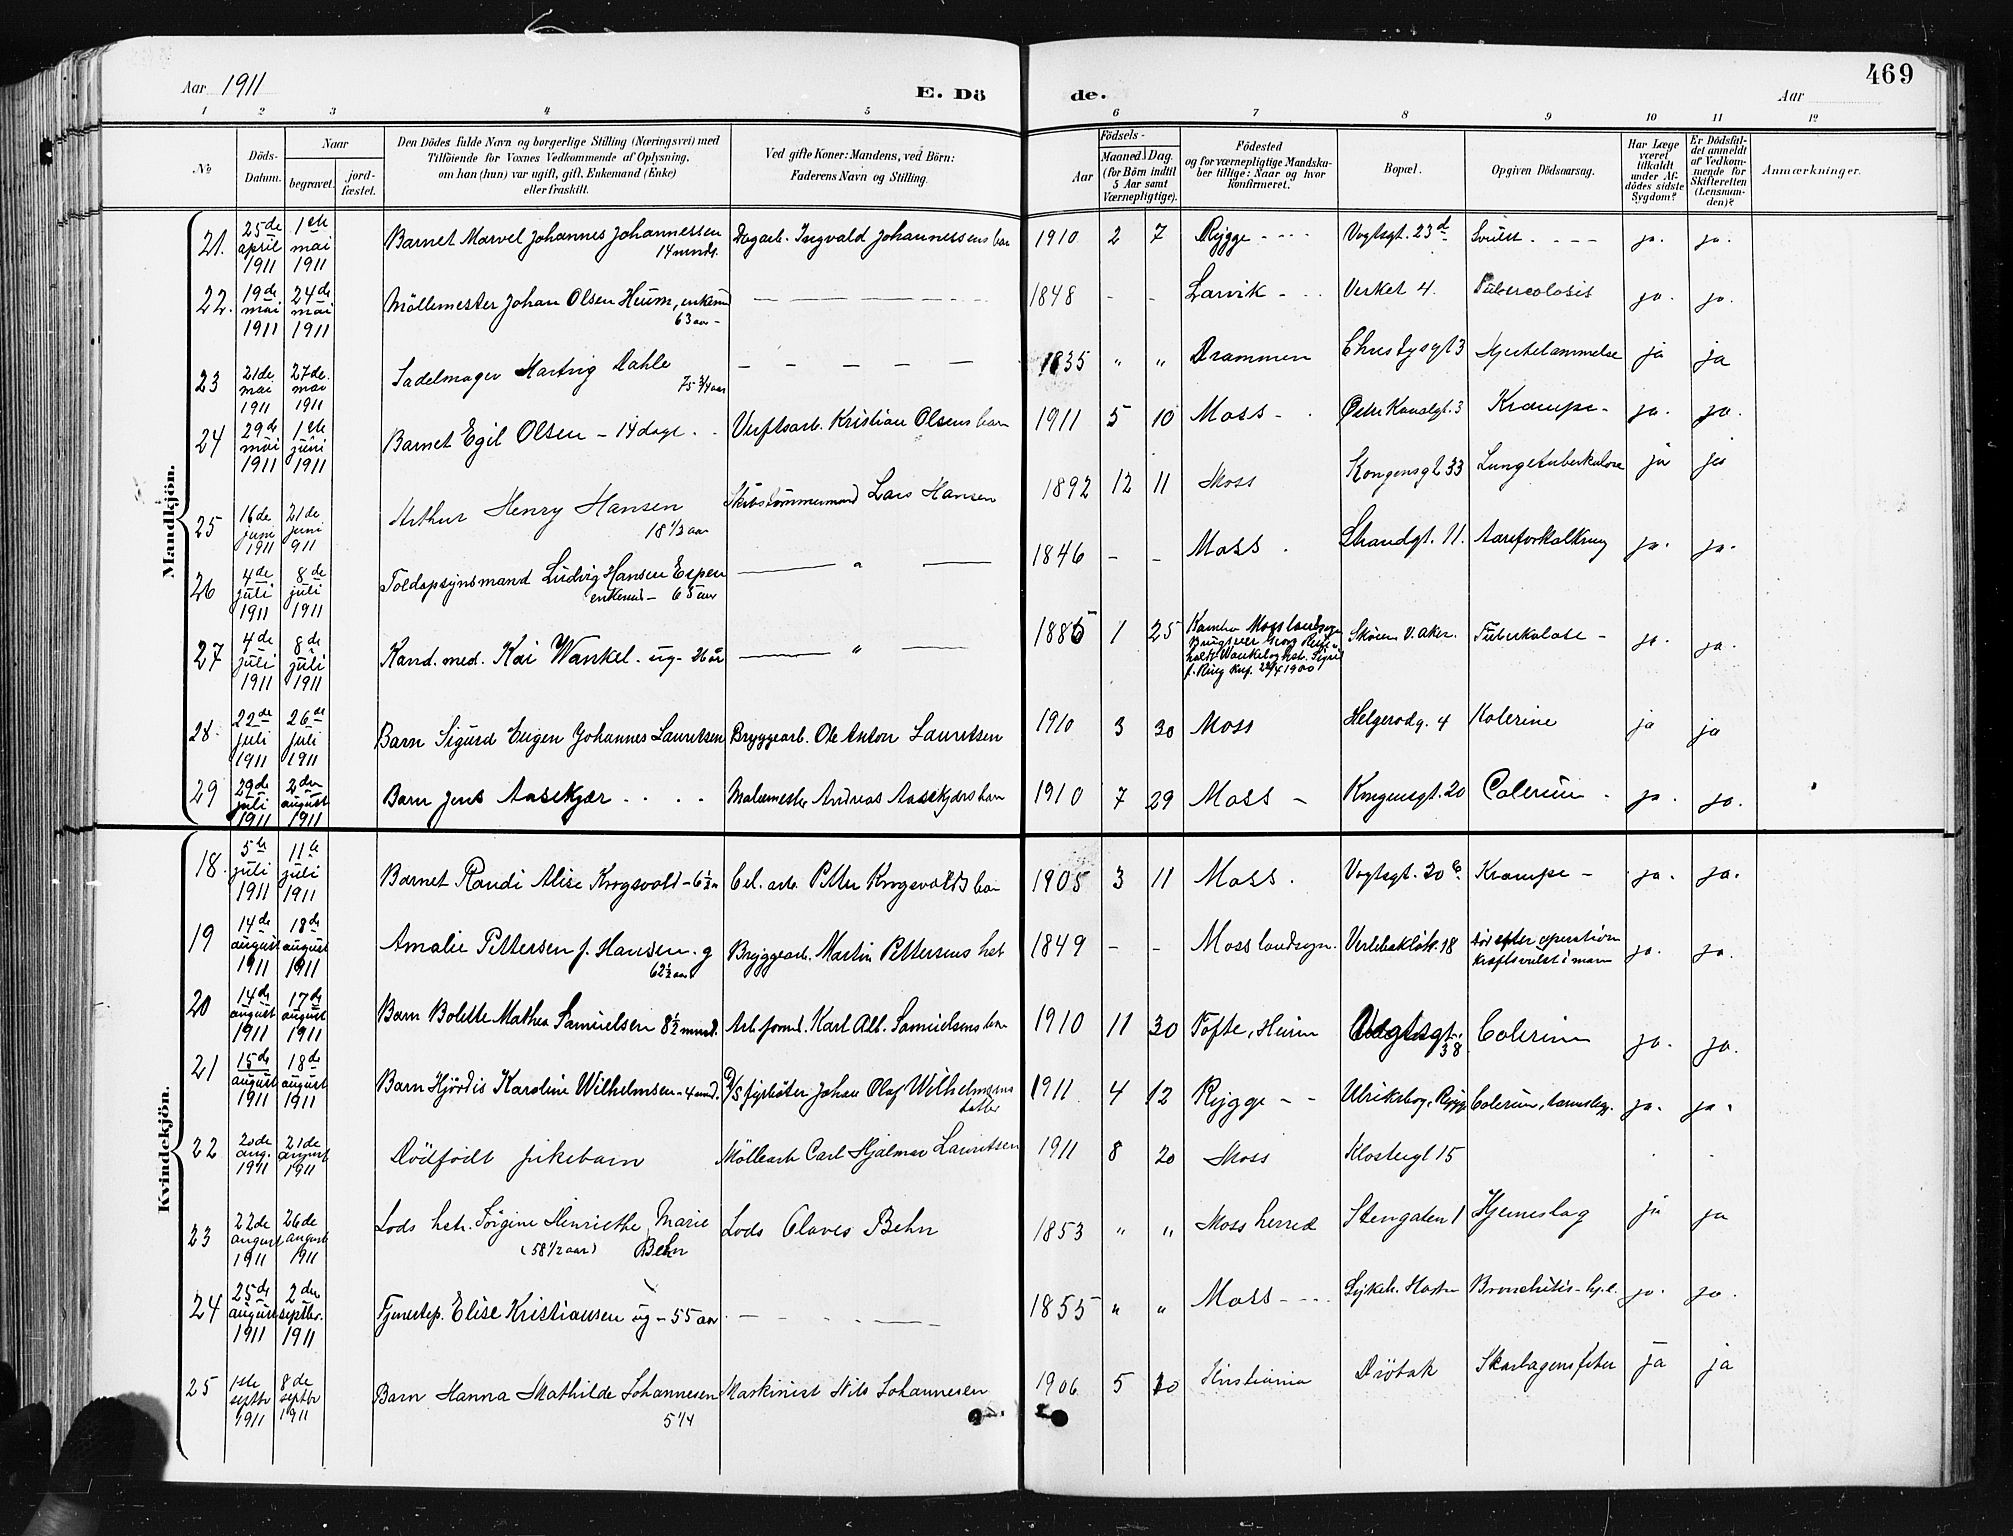 469
Aar 1911
E. Dö
de.
Aar
1 2 3 4 5 6 7 8 9 10 11 12
No
Döds-Datum.
Naar
begravet.
jord-fæstet.
Den Dödes fulde Navn og borgerlige Stilling (Næringsvei) med
Tilföiende for Voxnes Vedkommende af Oplysning,
om han (hun) var ugift, gift, Enkemand (Enke)
eller fraskilt.
Ved gifte Koner: Mandens, ved Börn:
Faderens Navn og Stilling.
Födsels-
Aar
Maaned. Dag.
(for Börn indtil
5 Aar samt
Værnepligtige).
Födested
og for værnepligtige Mandska-
ber tillige: Naar og hvor
konfirmeret.
Bopæl.
Opgiven Dödsaarsag.
Har Læge
været
tilkaldt
under Af-
dödes sidste
Sygdom?
Er Dödsfal-
det anmeldt
af Vedkom-
mende for
Skifteretten
(Lensman-
den)?
Anmærkninger.
Mandkjön.
21. 25de april 1911 1ste mai 1911 Barnet Marvel Johannes Johannessen 14 mnds. Dagarb. Ingvald Johannessens barn 1910 2 7 Rygge Vogtsgt. 23d Svulst ja. ja.
22. 19de mai 1911 24de mai 1911 Möllemester Johan Olsen Heum, enkemd 63 aar 1848 - - Larvik Verket 4. Tuberculosis ja. ja.
23 21de mai 1911 27de mai 1911 Sadelmager Hartvig Dahle 75 3/4 aar 1835 " " Drammen 3 Hjertelammelse ja ja
24 29de mai 1911 1ste juni 1911 Barnet Egil Olsen - 14 dage Verftsarb. Kristian Olsens barn 1911 5 10 Moss Østre Kanalgt. 3 Krampe ja. ja.
25 16de juni 1911 21de juni 911 Arthur Henry Hansen 18 1/2 aar Skibstømmermand Lars Hansen 1892 12 11 Moss Kongensgt 33 Lungetuberkulose ja ja
26 4de juli 1911 8de juli 1911 Toldopsynsmand Ludvig Hansen Espen enkemd - 65 aar " 1846 - - Moss Strandgt. 11. Aareforkalkning ja. ja.
27 4de juli 1911 8de juli 1911 Kand. med. Kai Wankel. ug - 26 år " 1885 1 25 Kambo Moss landsogn Georg Wankel og hst. f. Ring Knf. 22/4 1900 Skøien V. Aker. Tuberkulose ja. ja.
28. 22de juli 1911 26de juli 1911 Barn Sigurd Eugen Johannes Lauritsen Bryggearb. Ole Anton Lauritsen 1910 3 30 Moss Helgerødg. 4 Kolerine ja ja
29 29de juli 1911 2den august 1911 Barn Jens Aasekjær Malermester Andreas Aasekjærs barn 1910 7 29 Moss Kongensgt. 20 Colerine ja. ja.
Kvindekjön.
18. 5te juli 1911 11te juli 1911 Barnet Randi Alise Krogsvold - 6 1/2 Cel. arb. Petter Krogsvolds barn 1905 3 11 Moss. Vogtsgt. 20 Krampe ja. ja.
19 14de august 1911 18de august 1911 Amalie Pettersen f. Hansen. g 62 1/2 aar Bryggearb. Martin Pettersens hst 1849 - - Moss landsogn. 18 død efter operation kræftsvulst i maven ja. ja.
20 14de august 1911 17de august 1911 Barn Bolette Mathea Samuelsen 8 1/2 mnd. Arb.formd. Karl Alb. Samuelsens barn 1910 11 30 Tofte, Hurum Vogtsgt. 38 Colerine ja. ja.
21 15de august 1911 18de august 1911 Barn Hjördis Karoline Wilhelmsen - 4 mnd. D/S fyrböter Johan Olaf Wilhelmsens datter 1911 4 12 Rygge Ulriksborg, Rygge Colerine, ja. ja.
22 20de aug. 1911 21de august 1911 Dödfödt pikebarn Möllearb Carl Hjalmar Lauritsen 1911 8 20 Moss Klostergt 15
23 22de august 1911 26de august 1911 Lods hstr. Jörgine Henriette Marie Behn (58 1/2 aar) Lods Olaves Behn 1853 " " Moss herred Stengaten 1 Hjerneslag ja ja
24 25de august 1911 2den septbr. 1911 Tjenestep. Elise Kristiansen ug - 55 aar 1855 " " Moss Sykeh. Bronchitis ja. ja.
25 1ste septbr 1911 8de septbr 1911 Barn Hanna Mathilde Johannesen 5 1/4 Maskinist Nils Johannesen 1906 5 30 Kristiania Dröbak Skarlagensfeber ja ja